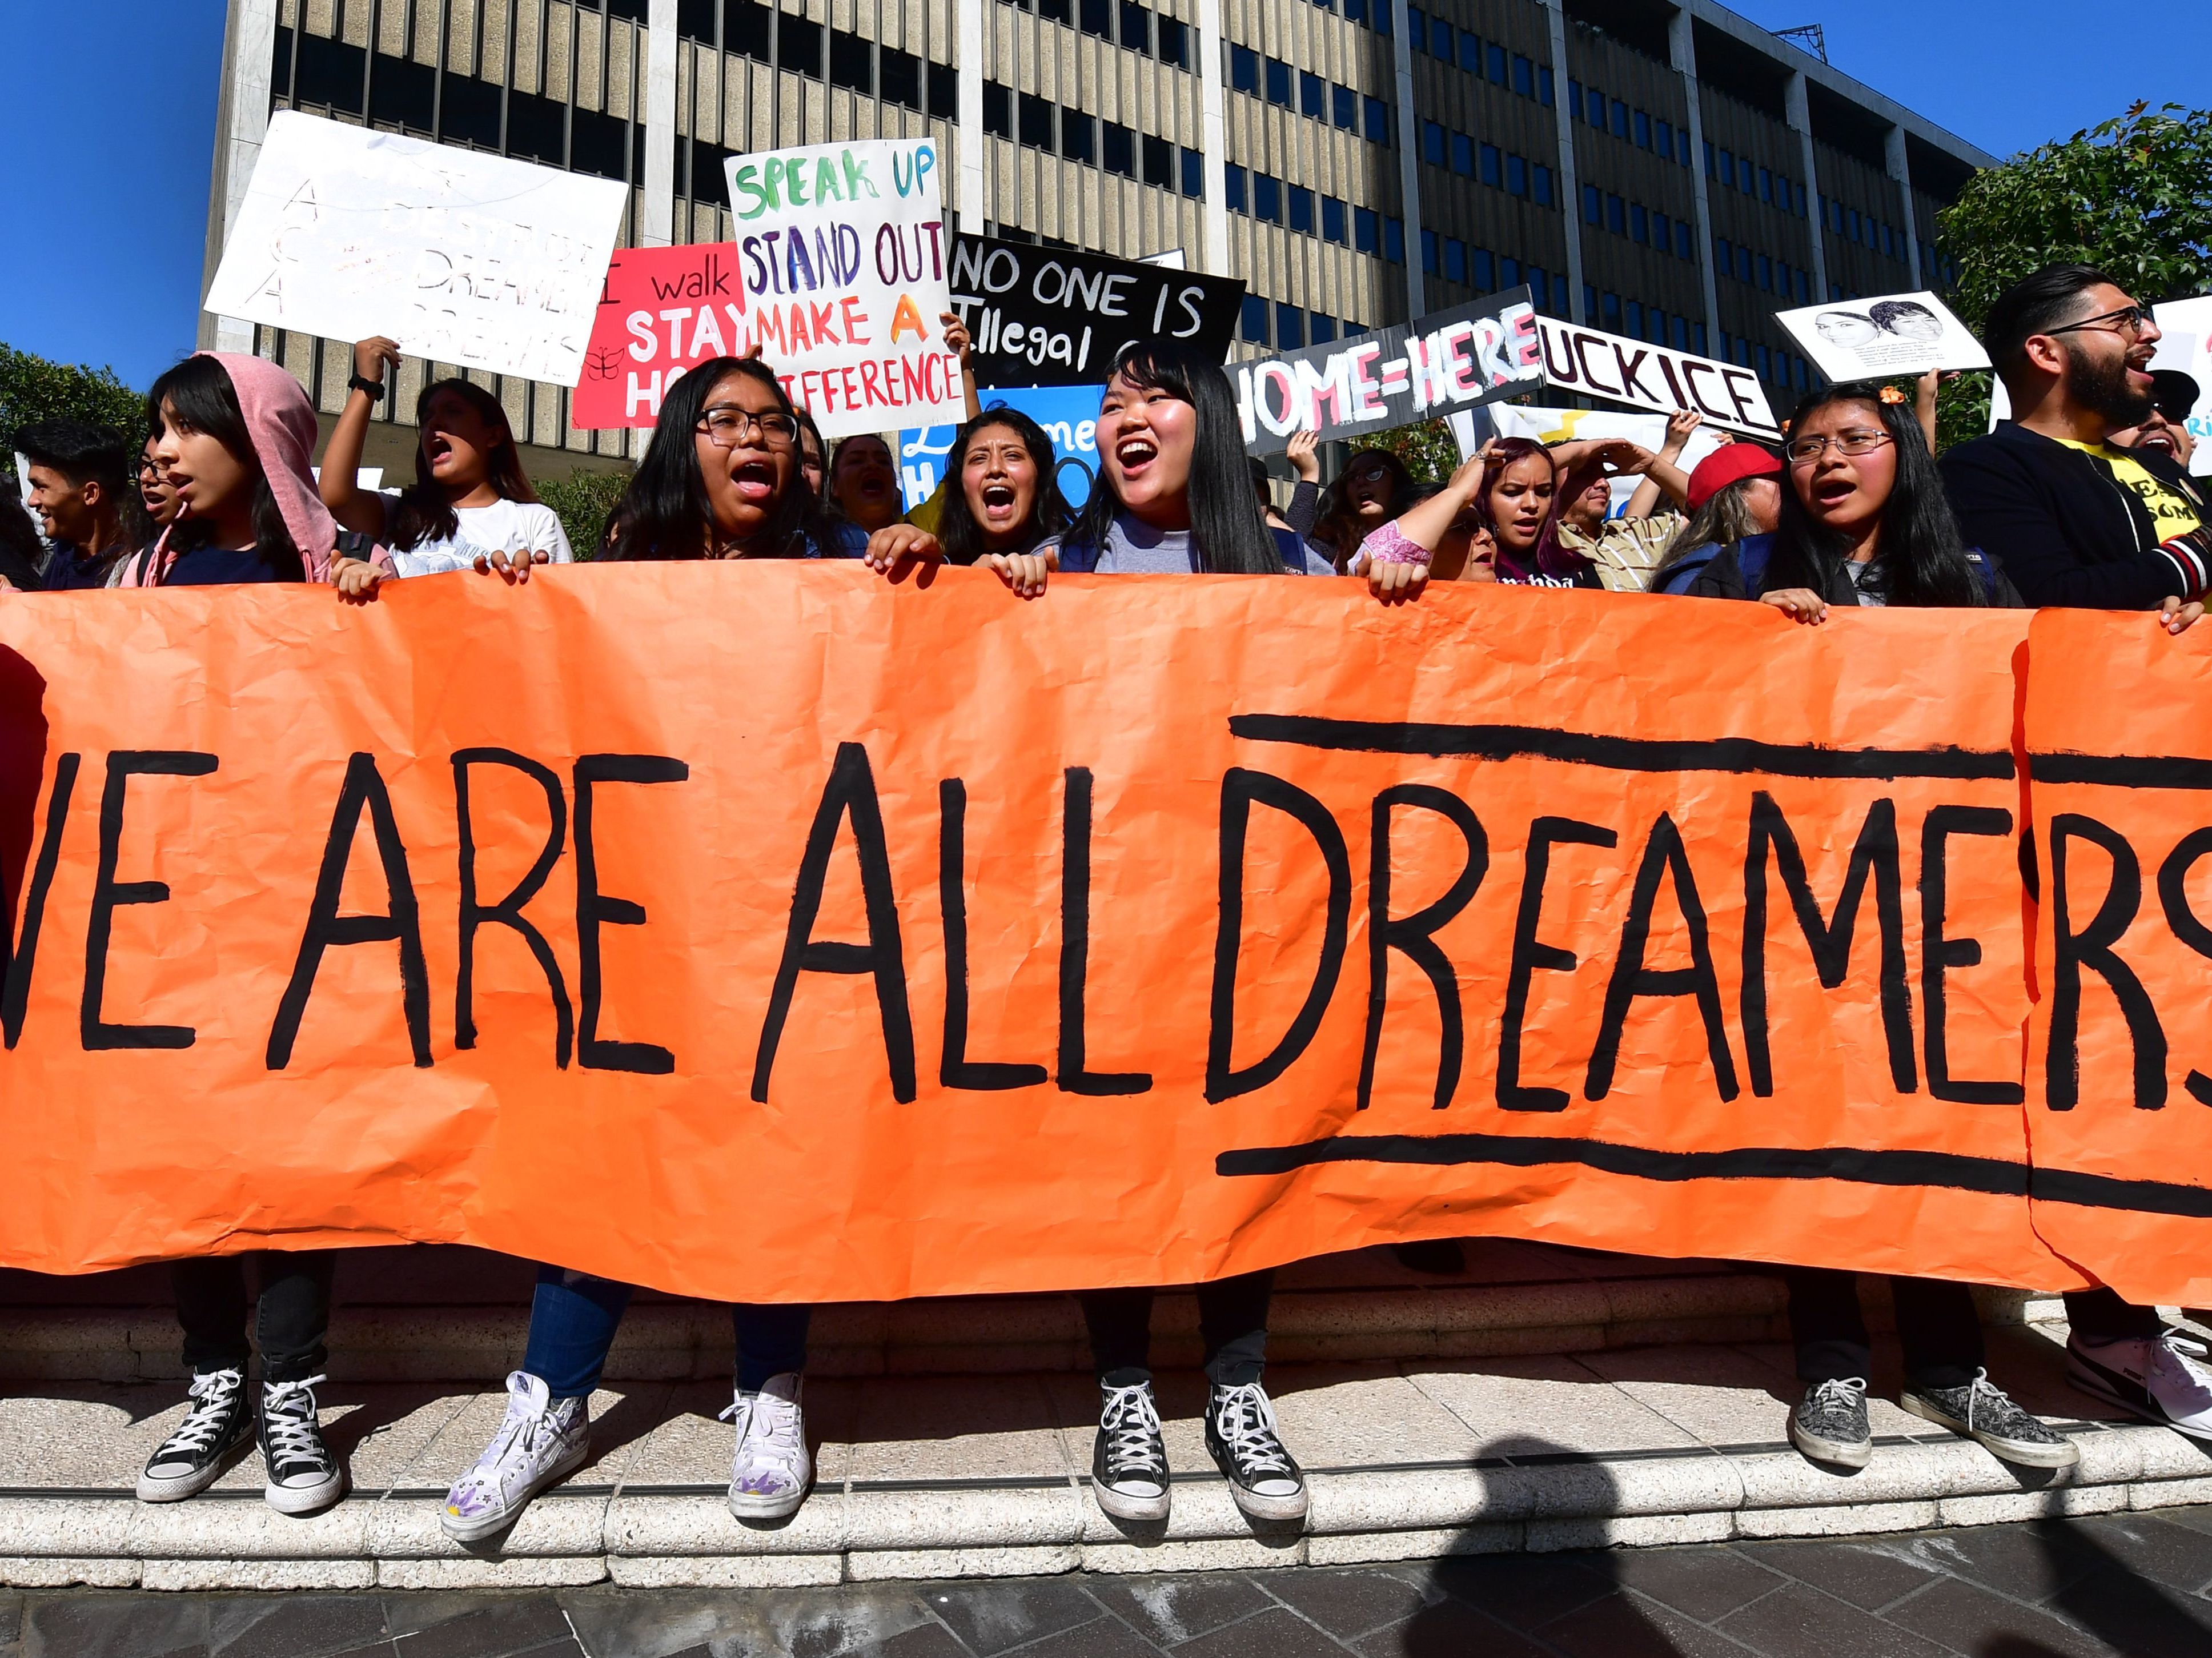 A
C
A
DREAMER
I walk
STAY
HO
SPEAK UP
STAND OUT
MAKE A
DIFFERENCE
NO ONE IS
Illegal
HOME=HERE
UCK ICE
me
H
WE ARE ALL DREAMERS